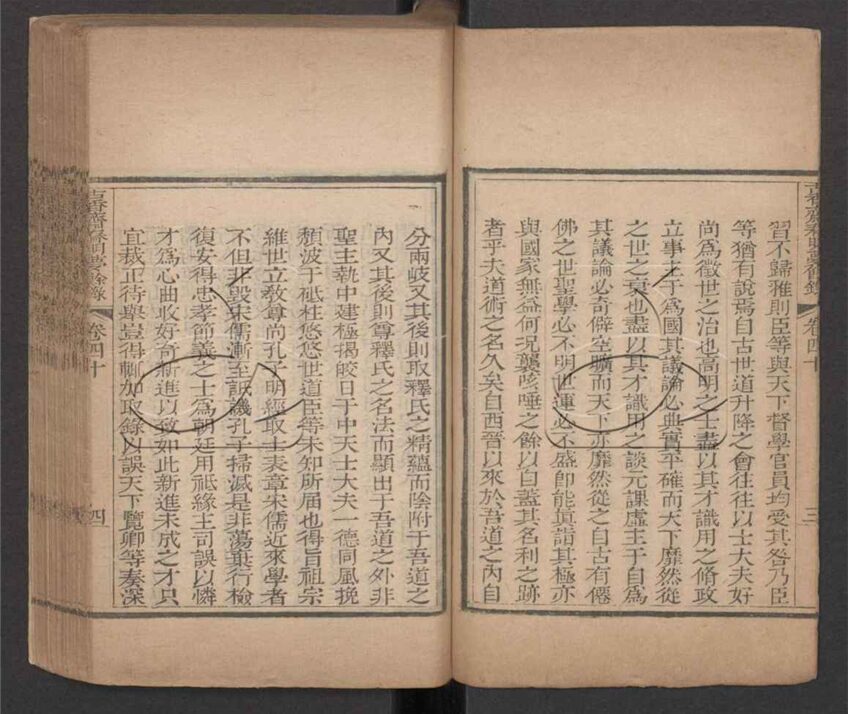 古香齋春明夢餘錄
卷四十
三
習不歸雅則臣等與天下督學官員均受其咎乃臣
等猶有說焉自古世道升降之會往往以士大夫好
尚爲徵世之治也高明之士盡以其才識用之脩政
立事主于爲國其議論必典實平確而天下靡然從
之世之衰也盡以其才識用之談元課虛主于自爲
其議論必奇僻空曠而天下亦靡然從之自古有僊
佛之世聖學必不明世運必不盛卽能眞詣其極亦
與國家無益何況襲咳唾之餘以自蓋其名利之跡
者乎夫道術之名久矣自西晉以來於吾道之內自
分兩岐又其後則取釋氏之精蘊而陰附于吾道之
內又其後則尊釋氏之名法而顯出于吾道之外非
聖主執中建極揭皎日于中天士大夫一德同風挽
頹波于砥柱悠悠世道臣等未知所屆也得旨祖宗
維世立敎尊尚孔子明經取士表章宋儒近來學者
不但非毀宋儒漸至詆譏孔子掃滅是非蕩棄行檢
復安得忠孝節義之士爲朝廷用祗緣主司誤以憐
才爲心曲收好奇新進以致如此新進未成之才只
宜裁正待舉豈得輒加取錄以誤天下覽卿等奏深
古香齋春明夢餘錄
卷四十
四